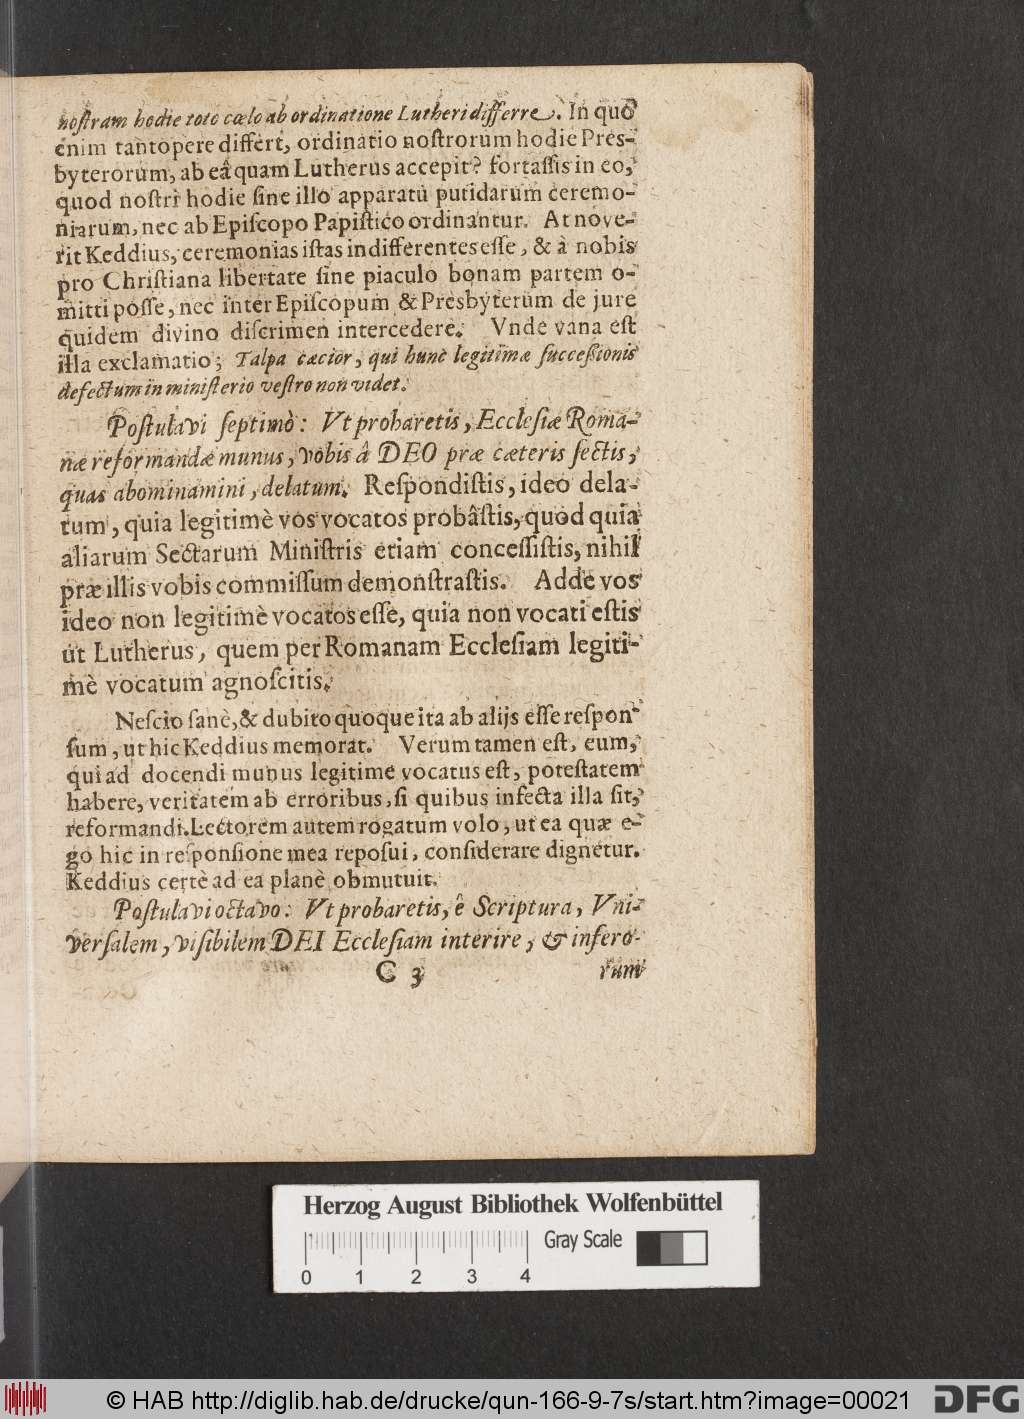 nostram hodie toto cœlo ab ordinatione Lutheri differre. In quo
enim tantopere differt, ordinatio nostrorum hodie Pres-
byterorum, ab eâ quam Lutherus accepit? fortassis in eo,
quod nostri hodie sine illo apparatu putidarum ceremo-
niarum, nec ab Episcopo Papistico ordinantur. At nove-
rit Keddius, ceremonias istas indifferentes esse, & à nobis
pro Christiana libertate sine piaculo bonam partem o-
mitti posse, nec inter Episcopum & Presbyterum de jure
quidem divino discrimen intercedere. Vnde vana est
illa exclamatio; Talpa cæcior, qui hunc legitimæ successionis
defectum in ministerio vestro non videt.
Postulavi septimò: Vt probaretis, Ecclesiæ Roma-
næ reformandæ munus, vobis â DEO præ cæteris sectis,
quas abominamini, delatum. Respondistis, ideo dela-
tum, quia legitimè vos vocatos probâstis, quod quia
aliarum Sectarum Ministris etiam concessistis, nihil
præ illis vobis commissum demonstrastis. Adde vos
ideo non legitimè vocatos esse, quia non vocati estis
ut Lutherus, quem per Romanam Ecclesiam legiti-
mè vocatum agnoscitis.
Nescio sanè, & dubito quoque ita ab alijs esse respon-
sum, ut hic Keddius memorat. Verum tamen est, eum,
qui ad docendi munus legitime vocatus est, potestatem
habere, veritatem ab erroribus, si quibus infecta illa sit,
reformandi. Lectorem autem rogatum volo, ut ea quæ e-
go hic in responsione mea reposui, considerare dignetur.
Keddius certè ad ea planè obmutuit.
Postulavi octavo: Vt probaretis, ê Scriptura, Vni-
versalem, visibilem DEI Ecclesiam interire, & infero-
C 3 rum
Herzog August Bibliothek Wolfenbüttel
Gray Scale
0 1 2 3 4
© HAB http://diglib.hab.de/drucke/qun-166-9-7s/start.htm?image=00021
DFG